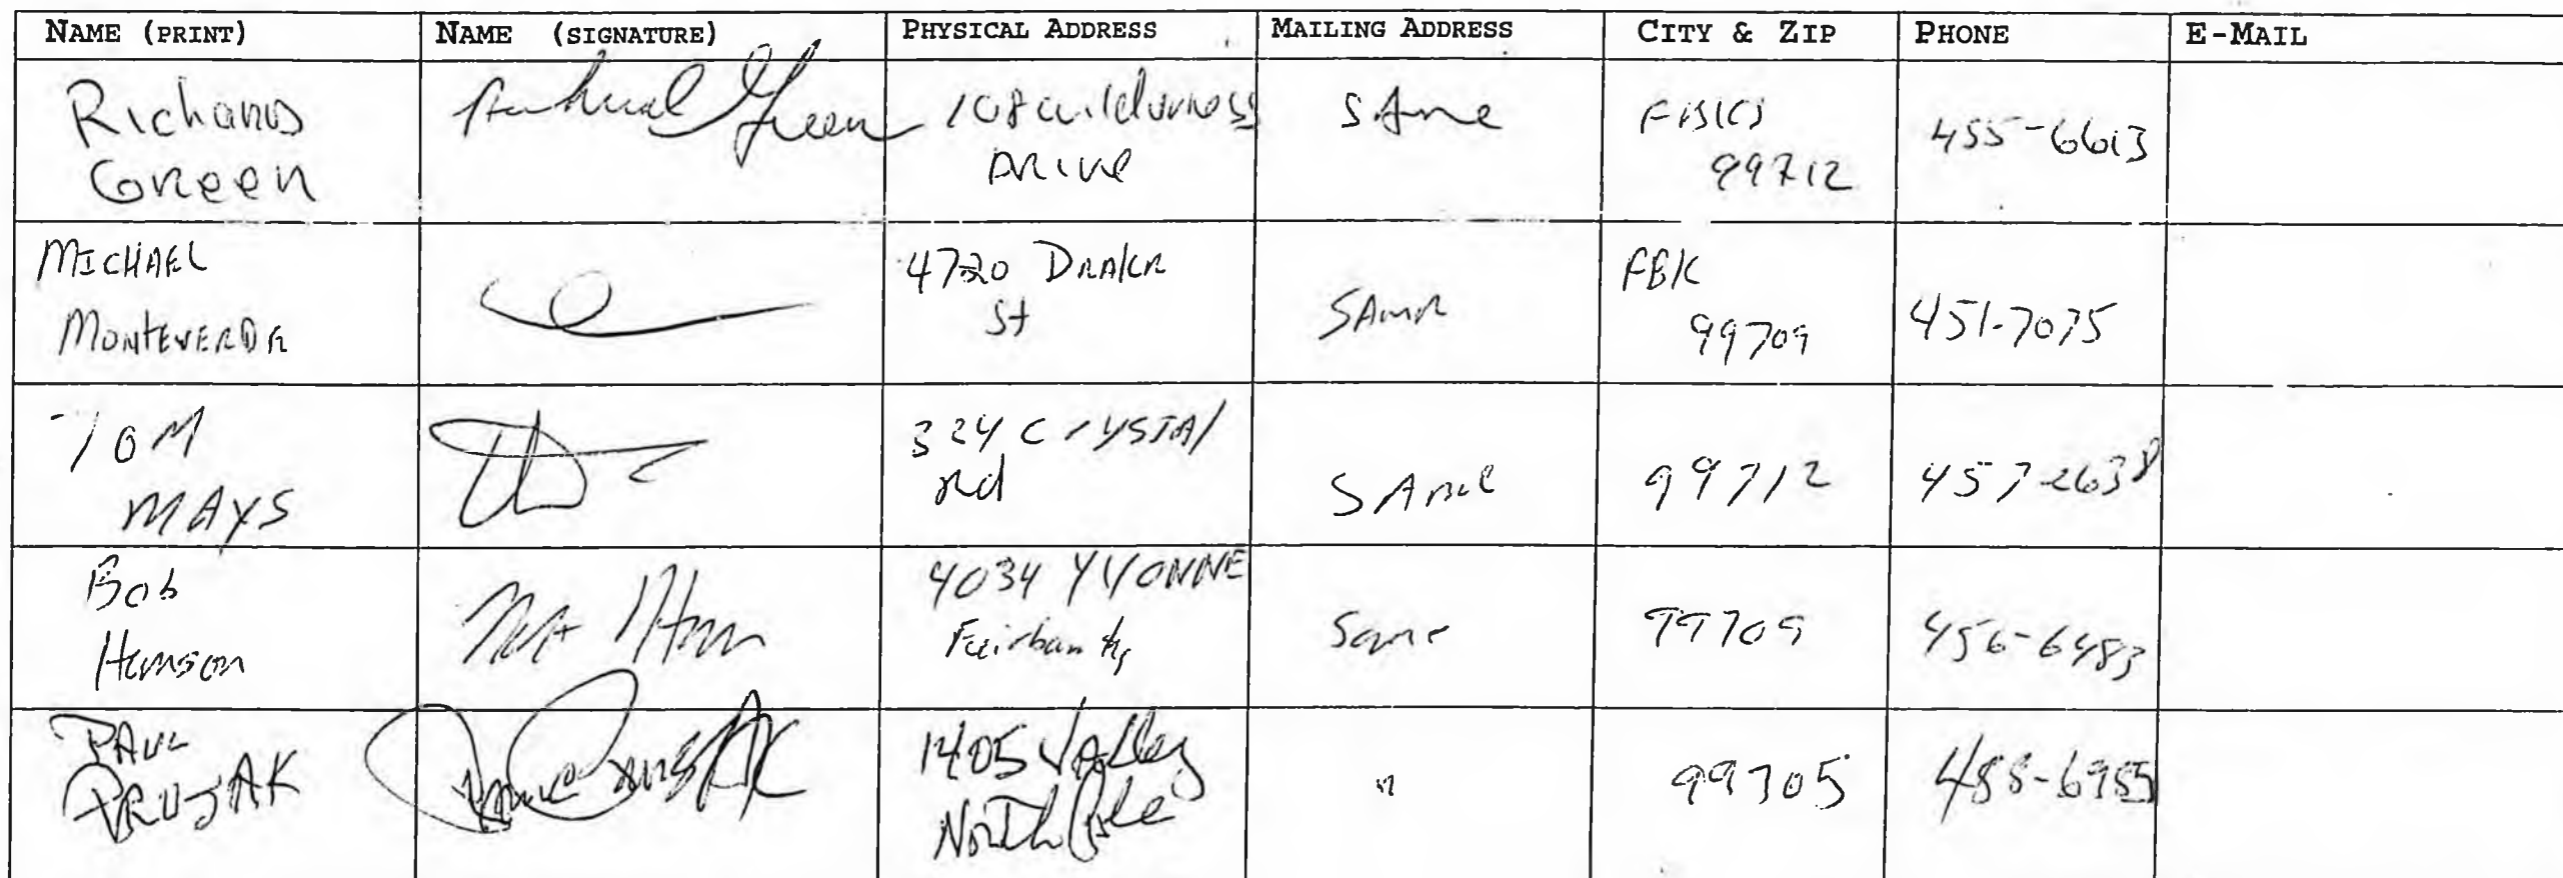 NAME (PRINT) NAME (SIGNATURE) PHYSICAL ADDRESS MAILING ADDRESS CITY & ZIP PHONE E-MAIL
Richard Green Richard Green 108 wilderness Drive SAme FBKS 99712 455-6613
MICHAEL MONTEVERDE 4720 DRAKE St SAME FBK 99709 451-7075
TOM MAYS 324 Crystal Rd SAme 99712 457-2638
Bob Hanson 4034 YVONNE Fairbanks Same 99709 456-6483
PAUL PRUSAK 1405 Valley North Pole " 99705 488-6985